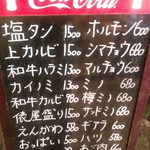 Coca-Cola
塩タン 1500 ホルモン 600
上カルビ 1500 シマチョウ 680
和牛ハラミ 1300 マルチョウ 600
カイノミ 1300 ミノ 680
和牛カルビ 980 梅ミノ 680
俵屋盛り 1500 サンドミノ 680
えんがわ 580 ギアラ 600
おっぱい ハツ 580